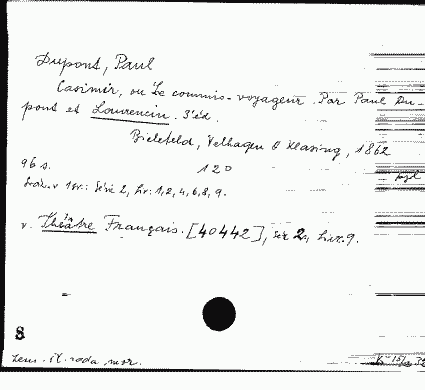 Dupont, Paul
Casimir, ou Le commis-voyageur. Par Paul Du-
pont et Laurencin. 3'éd.
Bielefeld, Velhagen & Klasing, 1862
96 s. 12°
v. Théâtre Français. [40442], sér 2, Livr. 9.
8